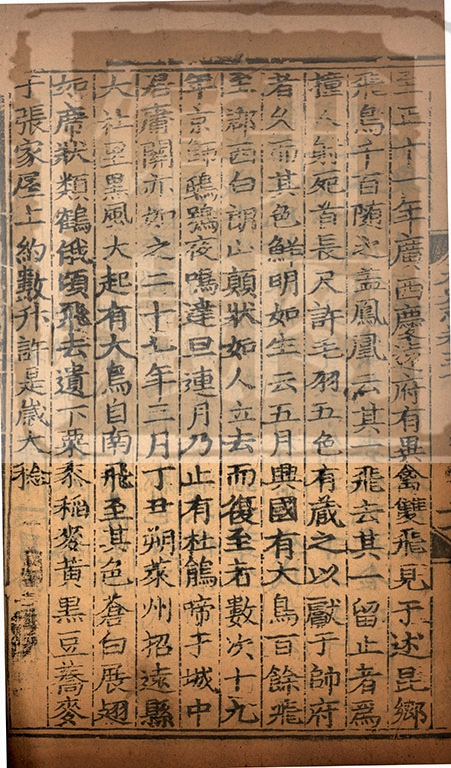 至正十一年廣西慶遠府有異禽雙飛見于述昆鄉
飛鳥千百隨之蓋鳳凰云其一飛去其一留止者爲
獞人射死首長尺許毛羽五色有藏之以獻于帥府
者久而其色鮮明如生云五月興國有大鳥百餘飛
至郡西白朗山顛狀如人立去而復至者數次十九
年京師鴟鴞夜鳴達旦連月乃止有杜鵑啼于城中
居庸關亦如之二十七年三月丁丑朔萊州招遠縣
大社里黑風大起有大鳥自南飛至其色蒼白展翅
如席狀類鶴俄頃飛去遺下粟黍稻麥黃黑豆蕎麥
于張家屋上約數升許是歲大稔